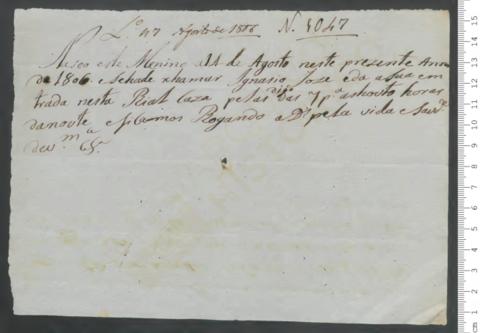 L.º 47 Agosto de 1806 N. 1047
Naseo este Menino a 14 de Agosto neste prezente Anno
de 1806 e Sehade xhamar Ignasio Joze e da a sua em
trada nesta Rial Caza pelas 7 p.ª as houto horas
da noute e ficamos Rogando a D.s pela vida e Saud.e
de v. m.ce